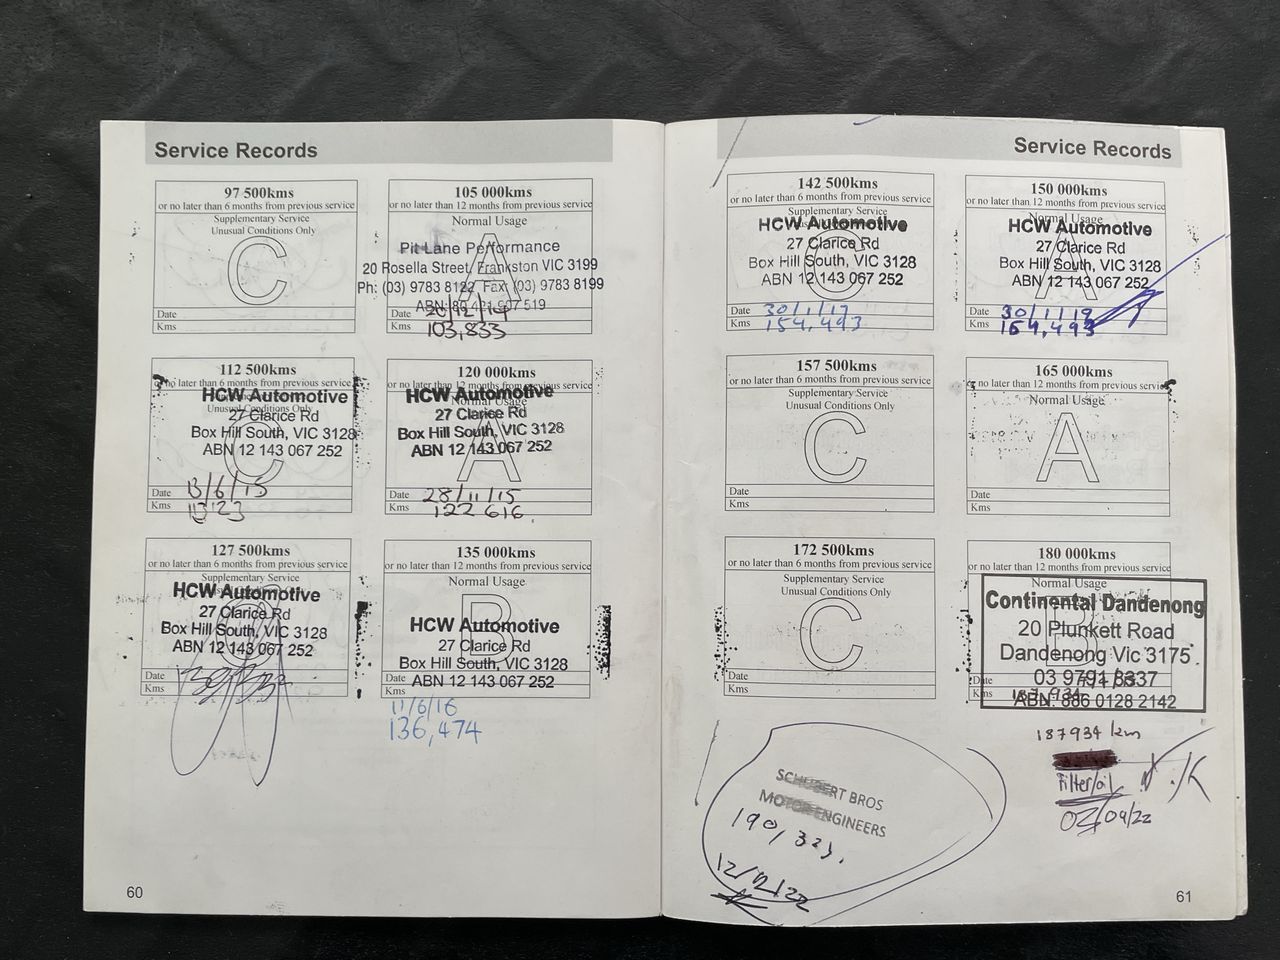 Service Records
97 500kms
or no later than 6 months from previous service
Supplementary Service
Unusual Conditions Only
C
Date
Kms
105 000kms
or no later than 12 months from previous service
Normal Usage
A
Pit Lane Performance
20 Rosella Street, Frankston VIC 3199
Ph: (03) 9783 8122 Fax: (03) 9783 8199
Date
Kms 103,833
112 500kms
or no later than 6 months from previous service
Unusual Conditions Only
C
HCW Automotive
27 Clarice Rd
Box Hill South, VIC 3128
ABN 12 143 067 252
Date 13/6/15
Kms
120 000kms
or no later than 12 months from previous service
Normal Usage
A
HCW Automotive
27 Clarice Rd
Box Hill South, VIC 3128
ABN 12 143 067 252
Date 28/11/15
Kms 122 616
127 500kms
or no later than 6 months from previous service
Supplementary Service
C
HCW Automotive
27 Clarice Rd
Box Hill South, VIC 3128
ABN 12 143 067 252
Date
Kms
135 000kms
or no later than 12 months from previous service
Normal Usage
B
HCW Automotive
27 Clarice Rd
Box Hill South, VIC 3128
Date
ABN 12 143 067 252
Kms
11/6/16
136,474
60
Service Records
142 500kms
or no later than 6 months from previous service
Supplementary Service
C
HCW Automotive
27 Clarice Rd
Box Hill South, VIC 3128
ABN 12 143 067 252
Date 30/1/19
Kms 154,493
150 000kms
or no later than 12 months from previous service
Normal Usage
A
HCW Automotive
27 Clarice Rd
Box Hill South, VIC 3128
ABN 12 143 067 252
Date 30/1/19
Kms 154,493
157 500kms
or no later than 6 months from previous service
Supplementary Service
Unusual Conditions Only
C
Date
Kms
165 000kms
or no later than 12 months from previous service
Normal Usage
A
Date
Kms
172 500kms
or no later than 6 months from previous service
Supplementary Service
Unusual Conditions Only
C
Date
Kms
180 000kms
or no later than 12 months from previous service
Normal Usage
B
Continental Dandenong
20 Plunkett Road
Dandenong Vic 3175
Date 03 9791 8337
Kms
ABN: 886 0128 2142
187934 km
Filter/oil
02/09/22
SCHUBERT BROS
MOTOR ENGINEERS
190,323.
12/12/22
61